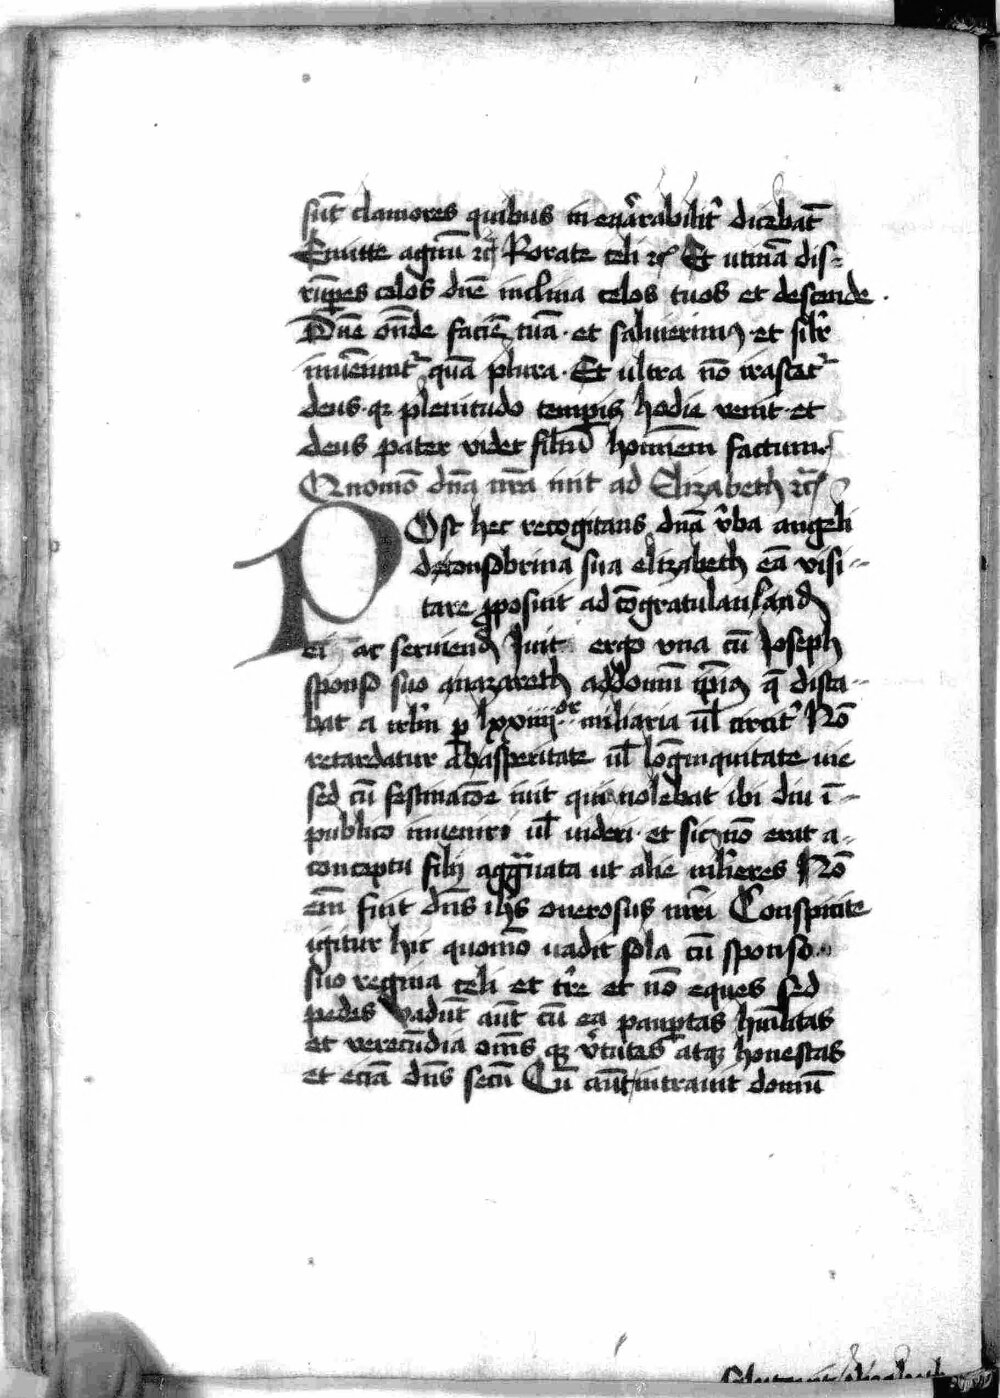 sūt clamores quibus in enārabilit᷑ dicebāt
Emitte agnū ⁊c̄ Rorate celi ⁊c̄ Et utinā dis-
rūpes celos dn̄e inclina celos tuos et descende .
Dn̄e on̄de faciē tuā · et salui erimꝰ · et sil̄r
inueniūt᷑ quā plura · Et ultra nō irascat᷑
deus · qꝛ plenitudo tempis hodie venit · et
deus pater videt filiū hominem factum
Quomō dn̄a nr̄a iuit ad Elizabeth ⁊c̄
POst hec recogitans dn̄a v̄ba angeli
de consobrina sua elizabeth eā visi-
tare ꝓposuit ad cōgratuland
ei ac seruiend Iuit ergo vna cū Joseph
sponso suo a nazareth ad domū ip̄iꝰ q̄ dista-
bat a irlm̄ ꝑ lxxiiiiᵒʳ miliaria ul̄ circit᷑ Nō
retardatur ab asperitate ul̄ lōginquitate uie
sed cū festinacōe iuit quia nolebat ibi diu ī-
publico inueniri ul̄ uideri · et sic nō erat a-
conceptu filij aggͣuata ut alie ml̄ieres Nō
em̄ fuit dn̄s ihs̄ onerosus mr̄i Conspicite
igitur hic quomō uadit sola cū sponso
suo regina celi et tr̄e et nō eques sed
pedes Vadūt aūt cū ea pauꝑtas hūilitas
et verecūdia om̄s qꝫ v̄tutes atqꝫ honestas
et eciā dn̄s secū Cū aūt intrauit domū